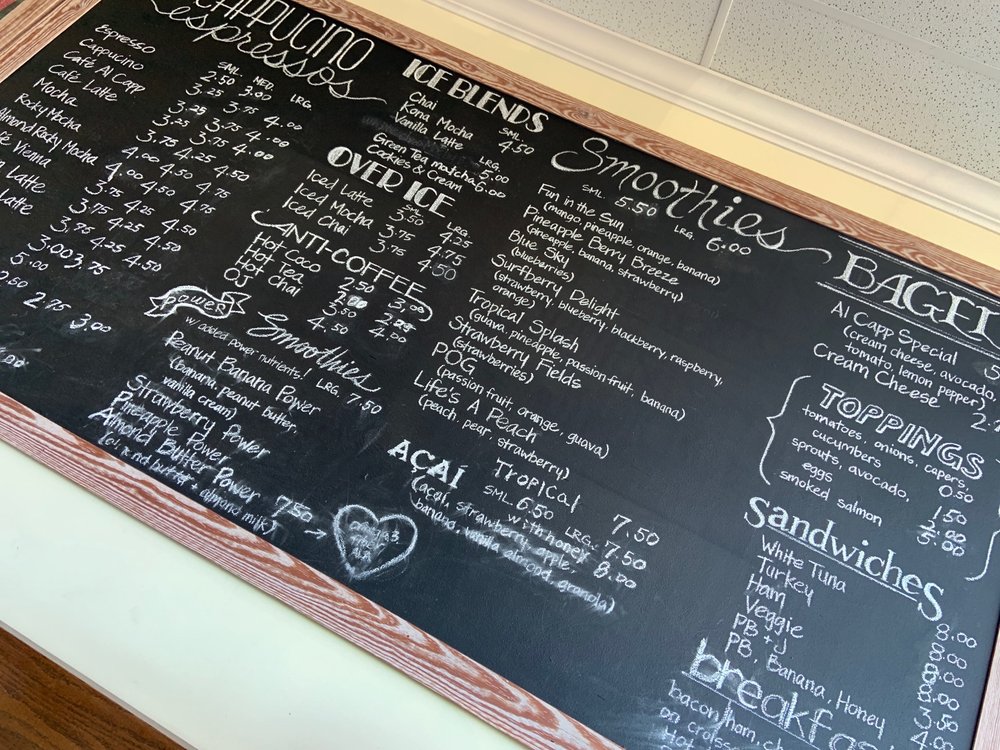 CAPPUCINO
espressos
SML. MED. LRG.
Espresso 2.50 3.00
Cappucino 3.25 3.75 4.00
Café Al Capp 3.25 3.75 4.00
Café Latte 3.25 3.75 4.00
Mocha
Rocky Mocha
Almond Rocky Mocha
Vienna
Latte
Latte
3.75 4.25 4.50
4.00 4.50 4.75
4.00 4.25 4.75
3.75 4.25 4.50
3.75 4.25 4.50
3.00 3.75 4.50
5.00
2.75 3.00
ICE BLENDS
Chai
Kona Mocha
Vanilla Latte
SML. 4.50
LRG. 5.00
Green Tea matcha
Cookies & Cream 6.00
OVER ICE
SML. LRG.
Iced Latte 3.50 4.25
Iced Mocha 3.75 4.75
Iced Chai 3.75 4.50
ANTI-COFFEE
Hot Coco 2.50 3.00
Hot Tea
Hot Chai 3.50
OJ 4.50 4.00
POWER
Smoothies
w/ added power nutrients! LRG. 7.50
Peanut Banana Power
(banana, peanut butter,
vanilla cream)
Strawberry Power
Pineapple Power
Almond Butter Power 7.50
Smoothies
SML. 5.50 LRG. 6.00
Fun in the Sun
(mango, pineapple, orange, banana)
Pineapple Berry Breeze
(pineapple, banana, strawberry)
Blue Sky
(blueberries)
Surfberry Delight
(strawberry, blueberry, blackberry, raspberry,
orange)
Tropical Splash
(guava, pineapple, passion fruit, banana)
Strawberry Fields
(strawberries)
POG
(passion fruit, orange, guava)
Life's A Peach
(peach, pear, strawberry)
AÇAÍ
Tropical 7.50
SML. 6.50 LRG. 7.50
with honey 8.00
(acai, strawberry, apple,
banana, vanilla almond granola)
BAGEL
Al Capp Special
(cream cheese, avocado,
tomato, lemon pepper)
Cream Cheese
TOPPINGS
tomatoes, onions, capers,
cucumbers 0.50
sprouts, avocado, 1.50
eggs 2.00
smoked salmon 5.00
Sandwiches
White Tuna 8.00
Turkey 8.00
Ham 8.00
Veggie 8.00
PB + J 3.50
PB, Banana, Honey 4.00
breakfa
bacon, ham, ch
on croiss
Hot